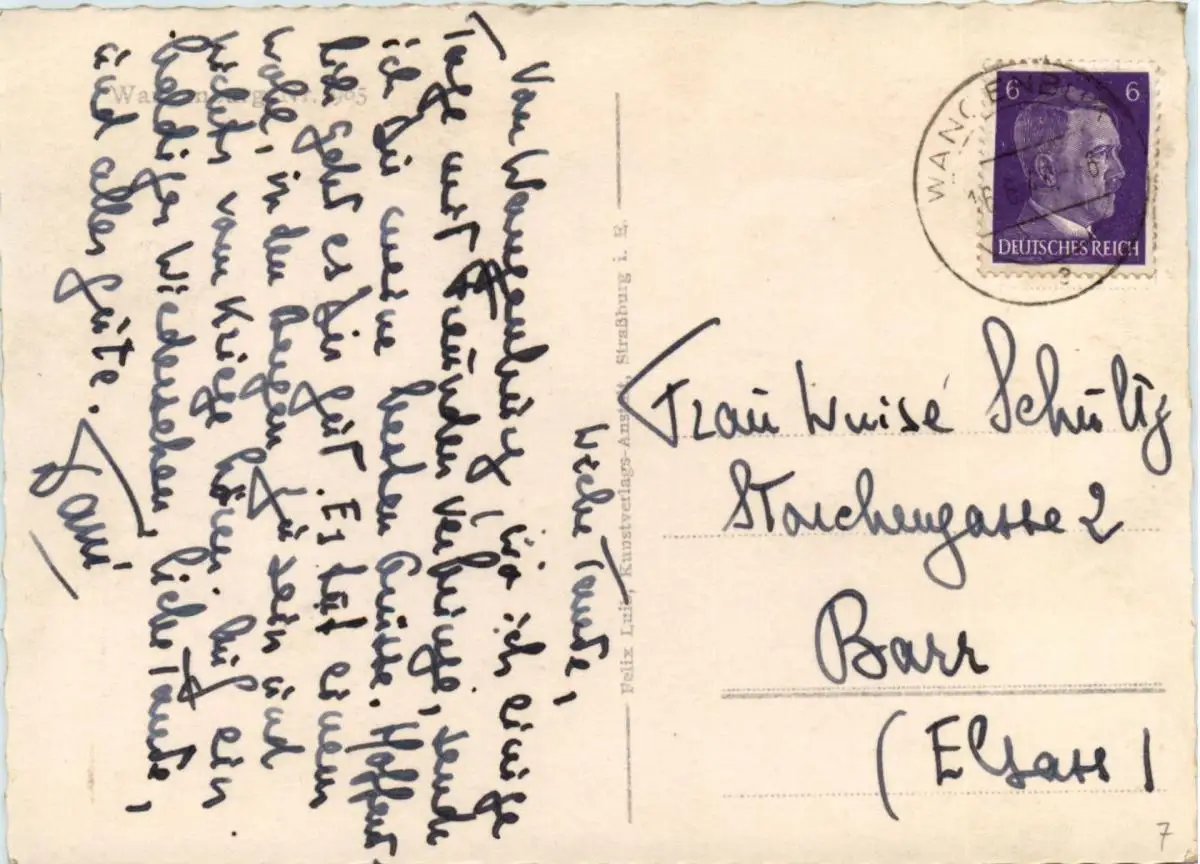 Wangenburg Nr. 985
Liebe Tante,
Von Wangenburg, wo ich einige
Tage mit Freunden verbringe, sende
ich Dir meine besten Grüsse. Hoffent
lich geht es Dir gut. Es tut einem
wohl, in den Bergen zu sein und
nichts vom Kriege hören. Auf ein
baldiges Wiedersehen, liebe Tante,
und alles Gute.
Felix Luib, Kunstverlags-Anstalt, Straßburg i. E.
6 6
DEUTSCHES REICH
WANGENBURG
Frau Luise Schultz
Storchengasse 2
Barr
(Elsass)
7